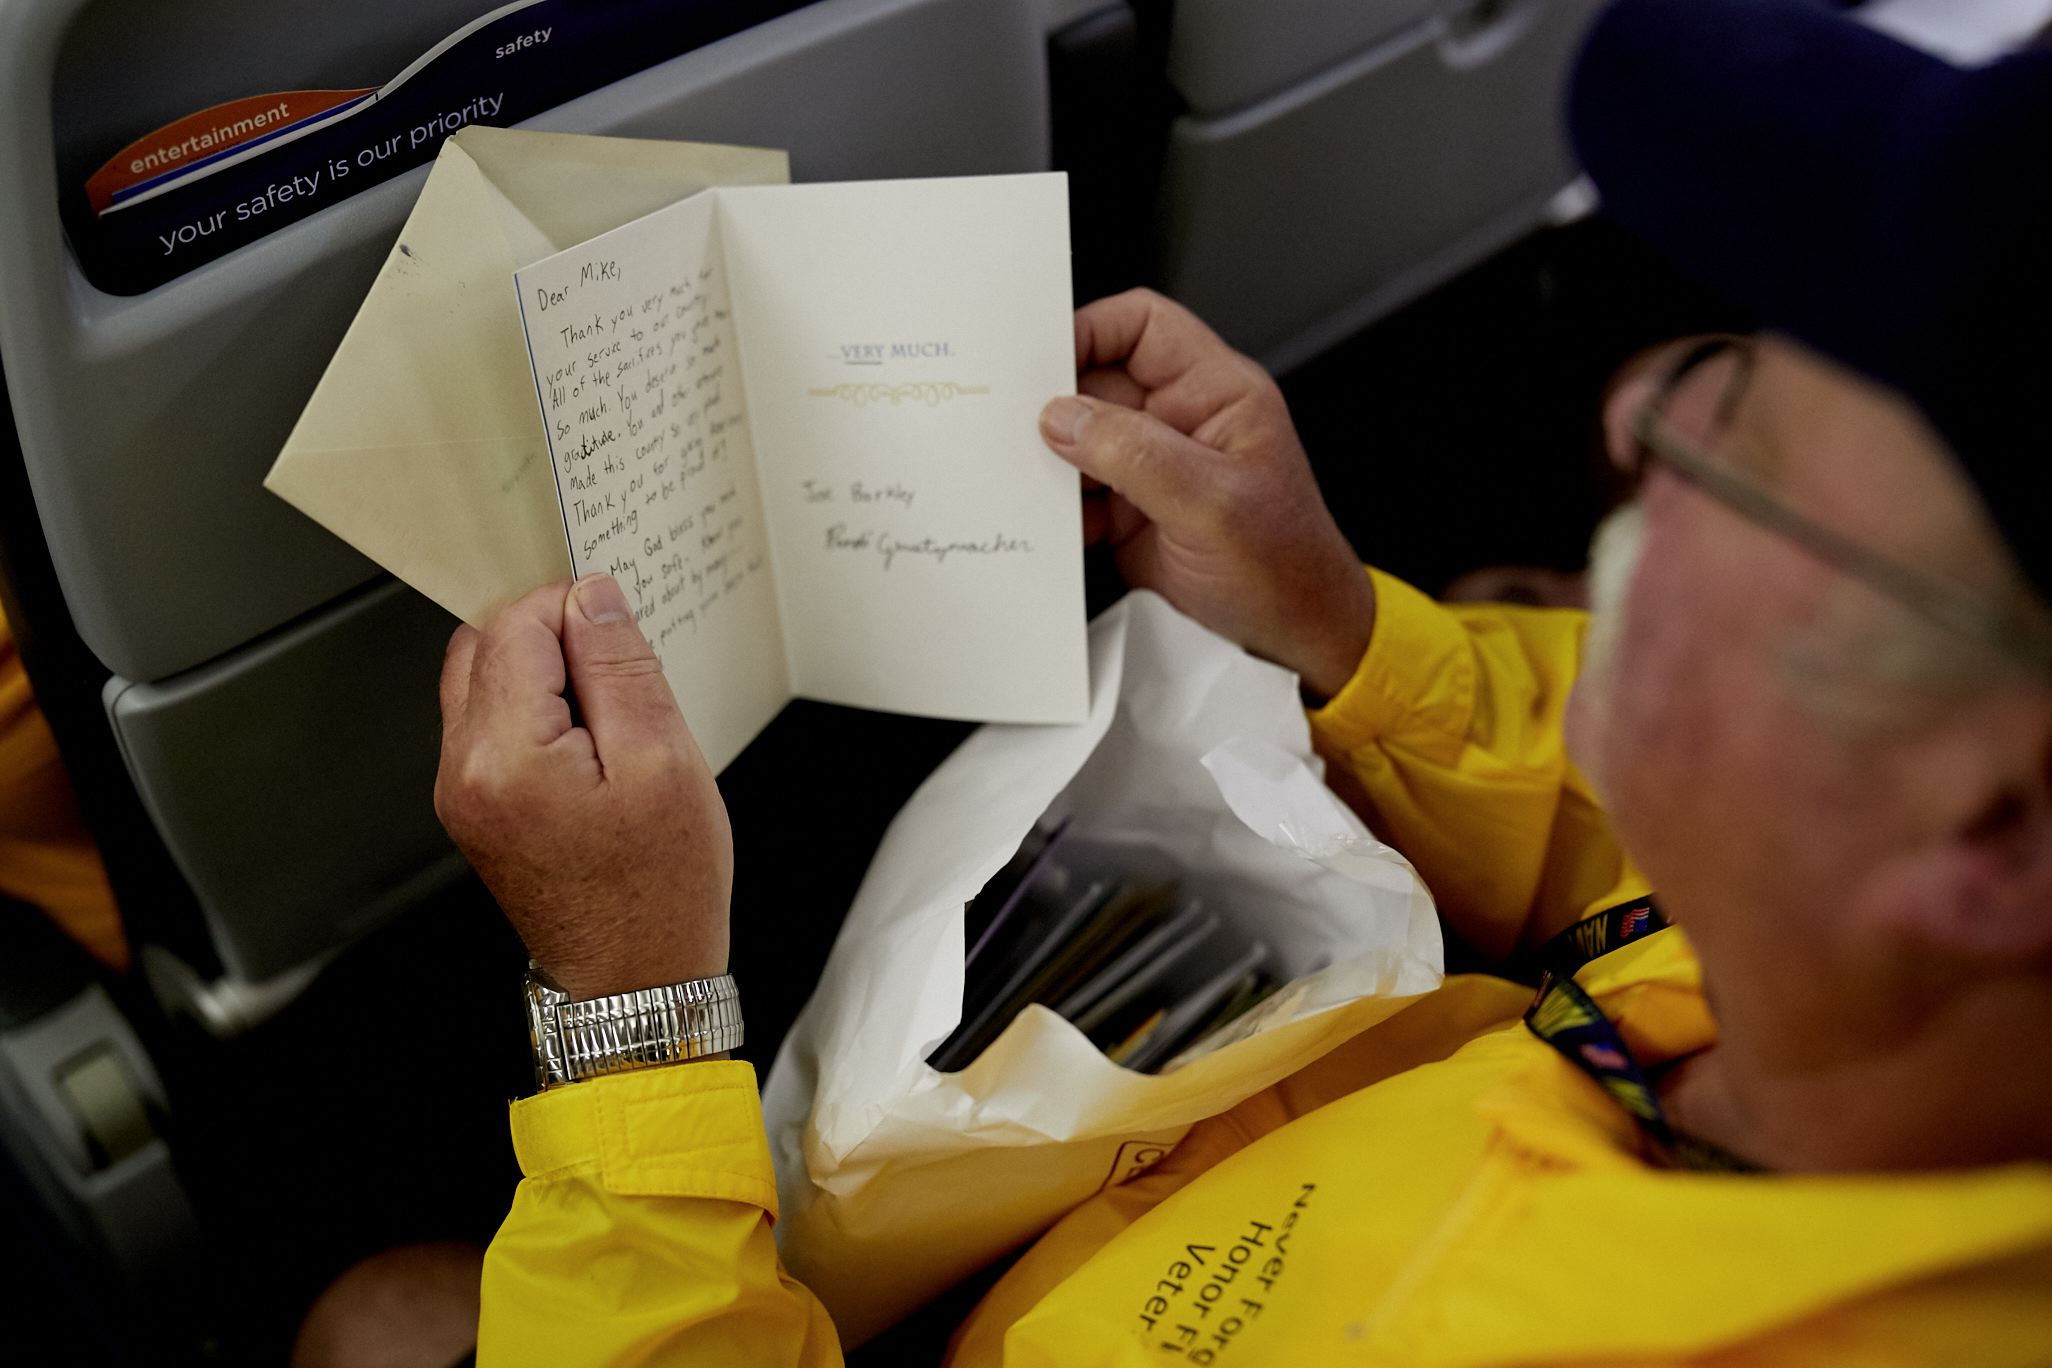 safety
entertainment
your safety is our priority
Dear Mike,
Thank you very much for
your service to our country.
All of the sacrifices you
So much. You deserve so much
gratitude. You and other
Made this country so
Thank you for
something to be proud of!
May God bless you and
you safe. Know you
ared about by many
putting your
...VERY MUCH.
Joe Barkley
NAV
Never Forg
Honor Fl
Veter